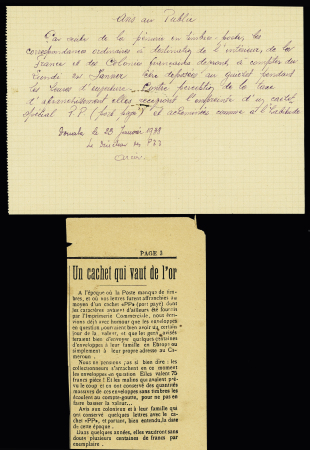 Avis au Public
Par suite de la pénurie en timbres-postes, les
correspondances ordinaires à destination de l'intérieur, de la
France et des Colonies françaises devront, à compter du
Janvier être déposées au guichet pendant
les heures d'ouverture. Contre perception de la taxe
d'affranchissement elles recevront l'empreinte d'un cachet
spécial P.P. (port payé) et acheminées comme à l'habitude
Douala le 23 Janvier
Le Directeur des PTT
PAGE 3
Un cachet qui vaut de l'or
A l'époque où la Poste manque de tim-
bres, et où vos lettres furent affranchies au
moyen d'un cachet «PP» (port payé) dont
les caractères avaient d'ailleurs été fournis
par l'Imprimerie Commerciale, nous écri-
vions déjà avec humour que les enveloppes
en question pourraient bien avoir un certain
jour de la valeur, et que les gens avisés
feraient bien d'envoyer quelques centaines
d'enveloppes à leur famille en Europe ou
simplement à leur propre adresse au Ca-
meroun.
Nous ne pensions pas si bien dire : les
collectionneurs s'arrachent en ce moment
les enveloppes en question. Elles valent 75
francs pièce ! Et les malins qui avaient pré-
vu le coup et en ont conservé des quantités
massives de ces enveloppes sans timbres les
écoulent au compte-goutte, pour ne pas en
faire baisser la valeur...
Avis aux coloniaux et à leur famille qui
ont conservé quelques lettres avec le ca-
chet «PP», et portant, bien entendu, la date
de cette époque.
Dans quelques années, elles vaudront sans
doute plusieurs centaines de francs par
exemplaire.